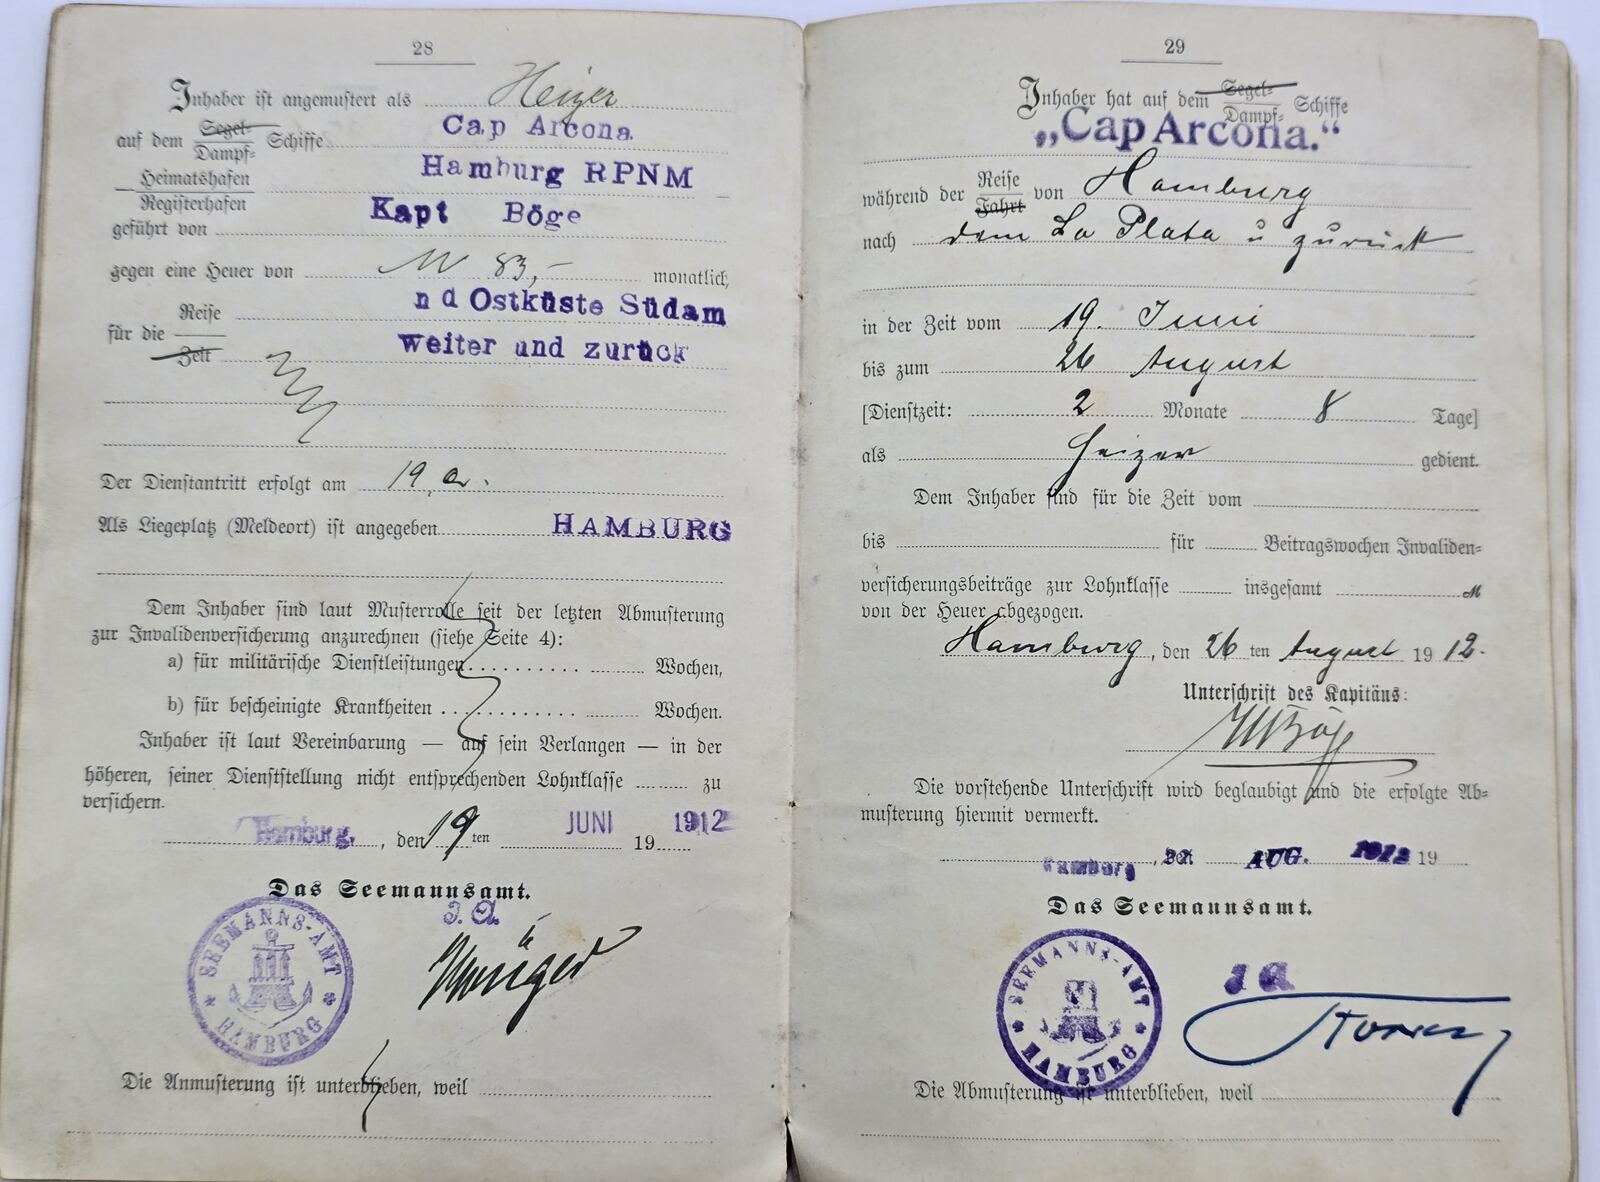 28
Inhaber ist angemustert als Heizer
auf dem Segel-/Dampf- Schiffe Cap Arcona
Heimatshafen/Registerhafen Hamburg RPNM
geführt von Kapt Böge
gegen eine Heuer von M 83,- monatlich,
für die Reise/Zeit n d Ostküste Südam
weiter und zurück
Der Dienstantritt erfolgt am 19. cr.
Als Liegeplatz (Meldeort) ist angegeben HAMBURG
Dem Inhaber sind laut Musterrolle seit der letzten Abmusterung
zur Invalidenversicherung anzurechnen (siehe Seite 4):
a) für militärische Dienstleistungen .......... Wochen,
b) für bescheinigte Krankheiten ............ Wochen.
Inhaber ist laut Vereinbarung — auf sein Verlangen — in der
höheren, seiner Dienststellung nicht entsprechenden Lohnklasse ........ zu
versichern.
Hamburg, den 19ten JUNI 19 1912
Das Seemannsamt.
J. A.
SEEMANNS-AMT
* HAMBURG *
Die Anmusterung ist unterblieben, weil
29
Inhaber hat auf dem Segel-/Dampf- Schiffe
„Cap Arcona."
während der Reise/Fahrt von Hamburg
nach dem La Plata u zurück
in der Zeit vom 19. Juni
bis zum 26 August
[Dienstzeit: 2 Monate 8 Tage]
als Heizer gedient.
Dem Inhaber sind für die Zeit vom
bis für Beitragswochen Invaliden-
versicherungsbeiträge zur Lohnklasse insgesamt M
von der Heuer abgezogen.
Hamburg, den 26ten August 1912.
Unterschrift des Kapitäns:
Böge
Die vorstehende Unterschrift wird beglaubigt und die erfolgte Ab-
musterung hiermit vermerkt.
Hamburg, den AUG. 1912 19
Das Seemannsamt.
J A
SEEMANNS-AMT
* HAMBURG *
Die Abmusterung ist unterblieben, weil